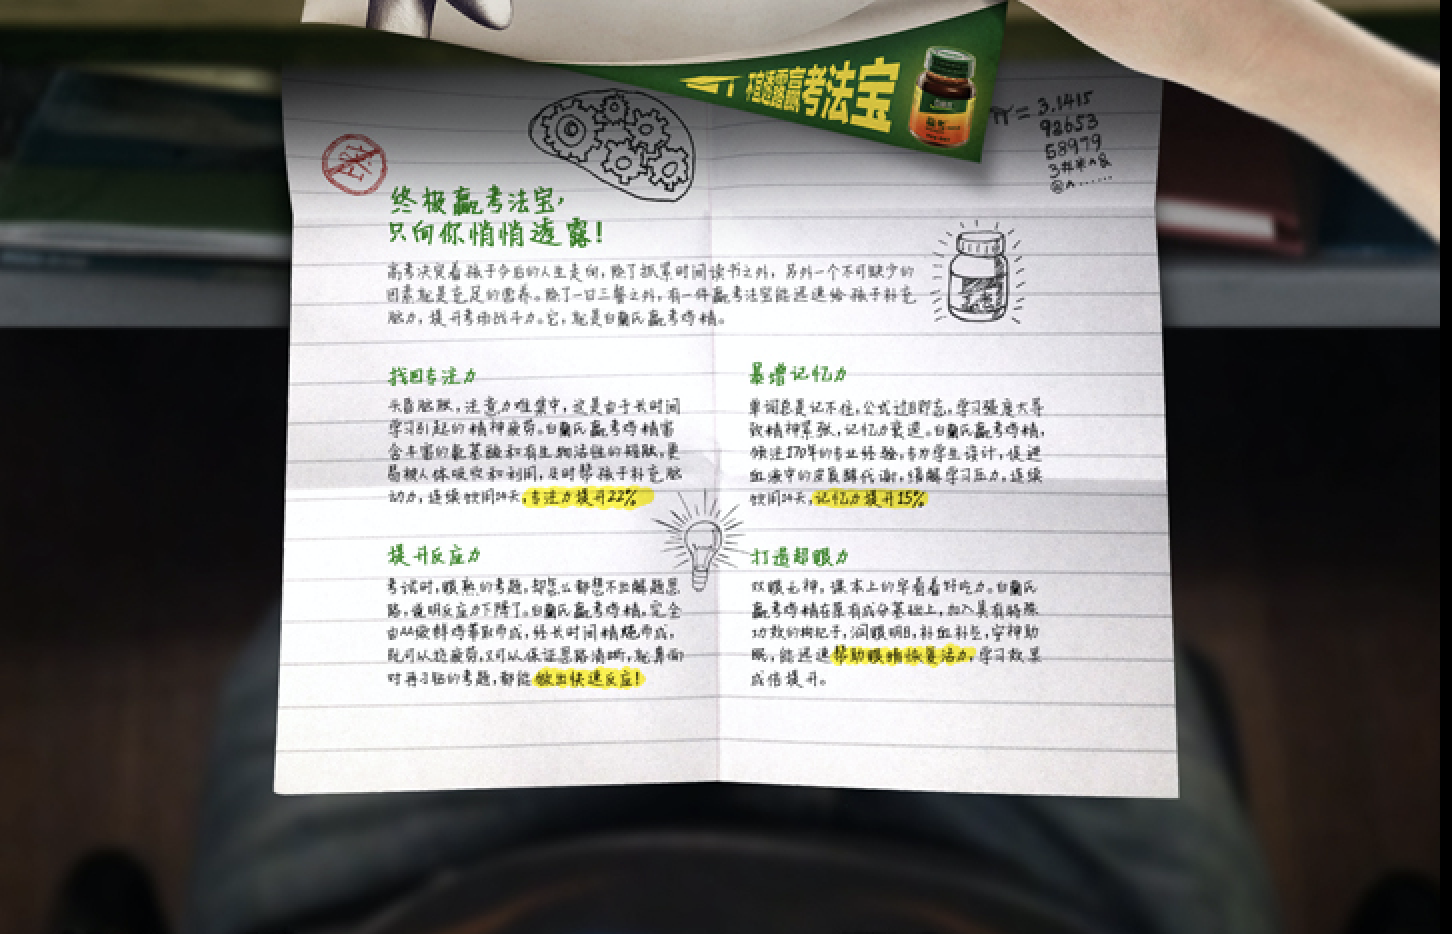 不宜透露赢考法宝
π = 3.1415
92653
58979
3##^&
@^......
终极赢考法宝，
只向你悄悄透露！
高考决定着孩子今后的人生走向，除了抓紧时间读书之外，另外一个不可缺少的
因素就是充足的营养。除了一日三餐之外，有一件赢考法宝能迅速给孩子补充
脑力，提升考场战斗力。它，就是白蘭氏赢考鸡精。
找回专注力
头昏脑胀，注意力难集中，这是由于长时间
学习引起的精神疲劳。白蘭氏赢考鸡精富
含丰富的氨基酸和有生物活性的短肽，更
易被人体吸收和利用，及时帮孩子补充脑
动力，连续饮用14天，专注力提升22%
暴增记忆力
单词总是记不住，公式过目即忘，学习强度大导
致精神紧张，记忆力衰退。白蘭氏赢考鸡精，
倾注170年的专业经验，专为学生设计，促进
血液中的皮质醇代谢，缓解学习压力，连续
饮用14天，记忆力提升15%
提升反应力
考试时，眼熟的考题，却怎么都想不出解题思
路，说明反应力下降了。白蘭氏赢考鸡精，完全
由AA级鲜鸡萃取而成，经长时间精炼而成，
既可以抗疲劳，又可以保证思路清晰，就算面
对再刁钻的考题，都能做出快速反应！
打造超眼力
双眼无神，课本上的字看着好吃力。白蘭氏
赢考鸡精在原有成分基础上，加入具有特殊
功效的枸杞子，润眼明目，补血补气，安神助
眠，能迅速帮助眼睛恢复活力，学习效果
成倍提升。